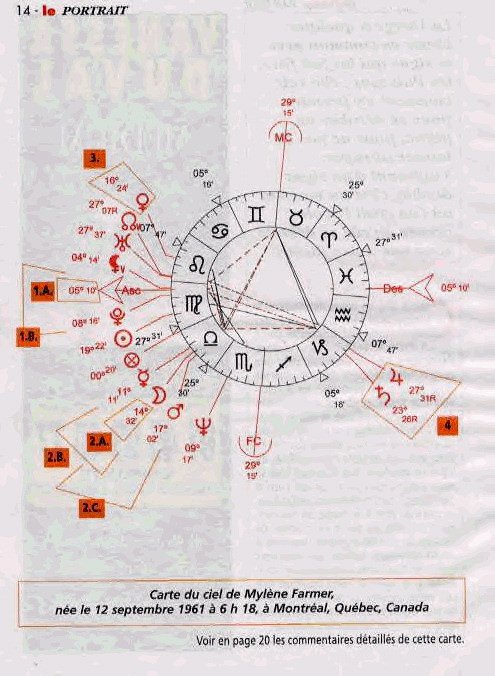 14 - le PORTRAIT
29°
15'
MC
3.
16°
24'
05°
16'
25°
30'
27°
07R
07°
47'
27°
37'
27°31'
04° 14'
1.A.
05° 10'
Asc
Des
05° 10'
1.B.
08° 16'
19° 22'
27°31'
07°
47'
00° 20'
11° 11'
14°
32'
25°
30'
05°
16'
27°
31R
23°
26R
4
17°
02'
2.A.
2.B.
09°
17'
FC
29°
15'
2.C.
Carte du ciel de Mylène Farmer,
née le 12 septembre 1961 à 6 h 18, à Montréal, Québec, Canada
Voir en page 20 les commentaires détaillés de cette carte.